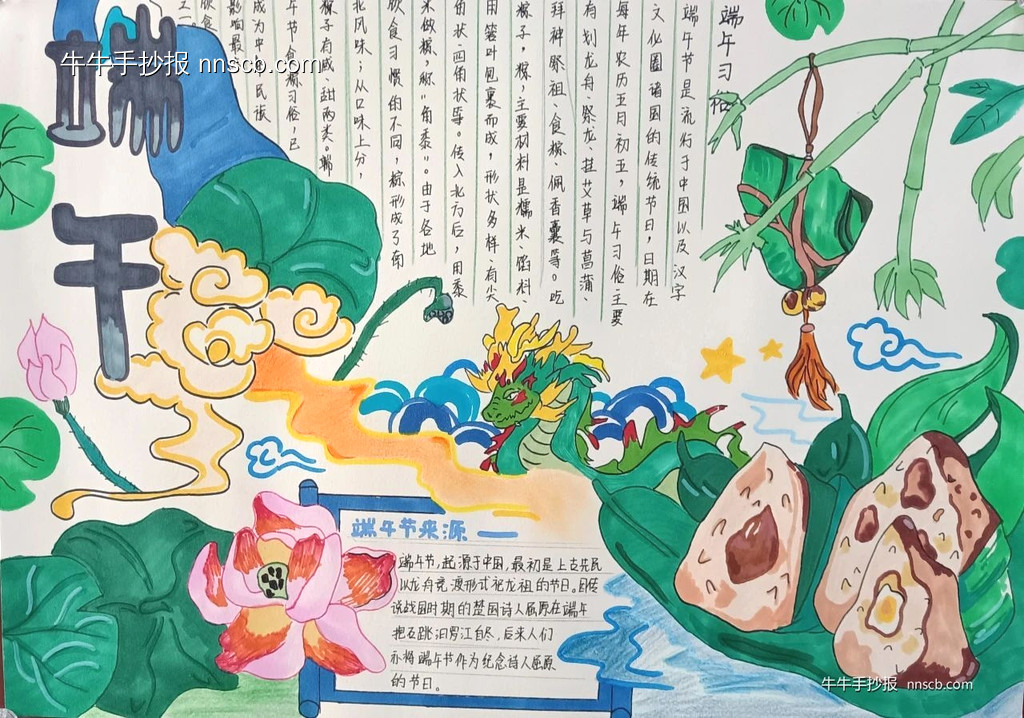 端午
牛牛手抄报 nnscb.com
端午习俗
端午节是流行于中国以及汉字
文化圈诸国的传统节日,日期在
每年农历五月初五,端午习俗主要
有划龙舟、祭龙、挂艾草与菖蒲、
拜神祭祖、食粽、佩香囊等。吃
粽子,粽,主要材料是糯米、馅料、
用箬叶包裹而成,形状多样,有尖
角状、四角状等。传入北方后,用黍
米做粽,称"角黍"。由于各地
饮食习惯的不同,粽形成了南
北风味;从口味上分,
粽子有咸、甜两类。端
午节食粽习俗,已
成为中
民族
影响最
端午节来源
端午节,起源于中国,最初是上古先民
以龙舟竞渡形式祀龙祖的节日。因传
说战国时期的楚国诗人屈原在端午
抱石跳汨罗江自尽,后来人们
亦将端午节作为纪念诗人屈原
的节日。
牛牛手抄报 nnscb.com